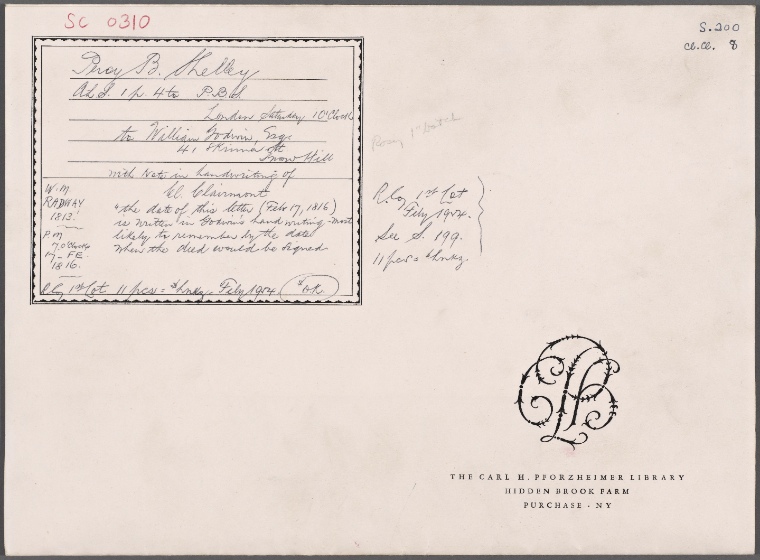 SC 0310
S.200
Cl.Cl. 8
Percy B. Shelley
A.L.S. 1 p. 4to P.B.S.
London Saturday 10 o'Clock
to William Godwin, Esqr
41 Skinner St
Snow Hill
with Note in handwriting of
Cl. Clairmont
"the date of this letter (Feb 17, 1816)
is written in Godwin's handwriting - most
likely to remember by the date
when the deed would be signed
W.M.
RADWAY
1813!
P.M.
7 o'Clock
17 - FE.
1816.
R.Co 1st Lot 11 pcs = Feby 1904
R.Co 1st Lot
Feby 1904.
See S. 199.
11 pcs =
THE CARL H. PFORZHEIMER LIBRARY
HIDDEN BROOK FARM
PURCHASE · NY